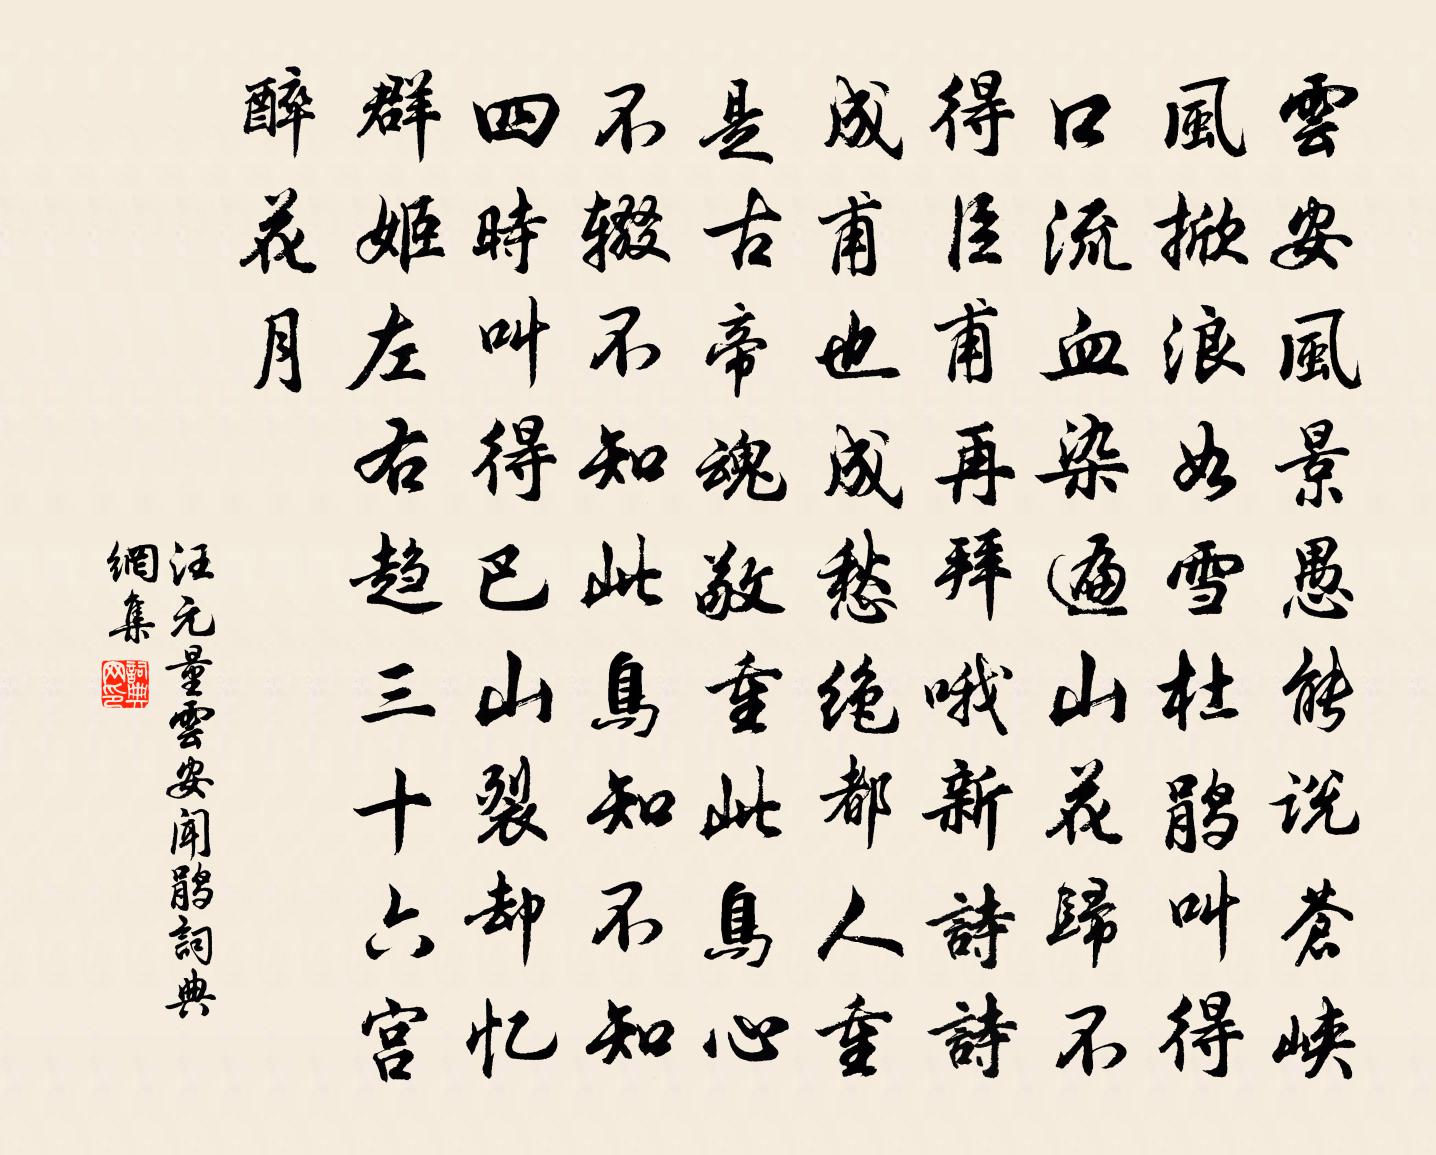 雲安風景愚能说蒼峡
風掀浪如雪杜鹃叫得
口流血染遍山花歸不
得臣甫再拜哦新詩詩
成甫也成愁绝都人重
是古帝魂敬重此鳥心
不辍不知此鳥知不知
四時叫得巴山裂却忆
群姬左右趋三十六宫
醉花月
汪元量雲安聞鹃詞典
網集
詞典网印